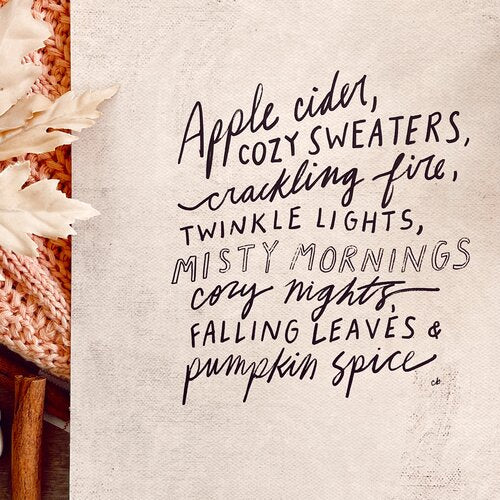 Apple cider,
COZY SWEATERS,
crackling fire,
TWINKLE LIGHTS,
MISTY MORNINGS
cozy nights,
FALLING LEAVES &
pumpkin spice
cb.